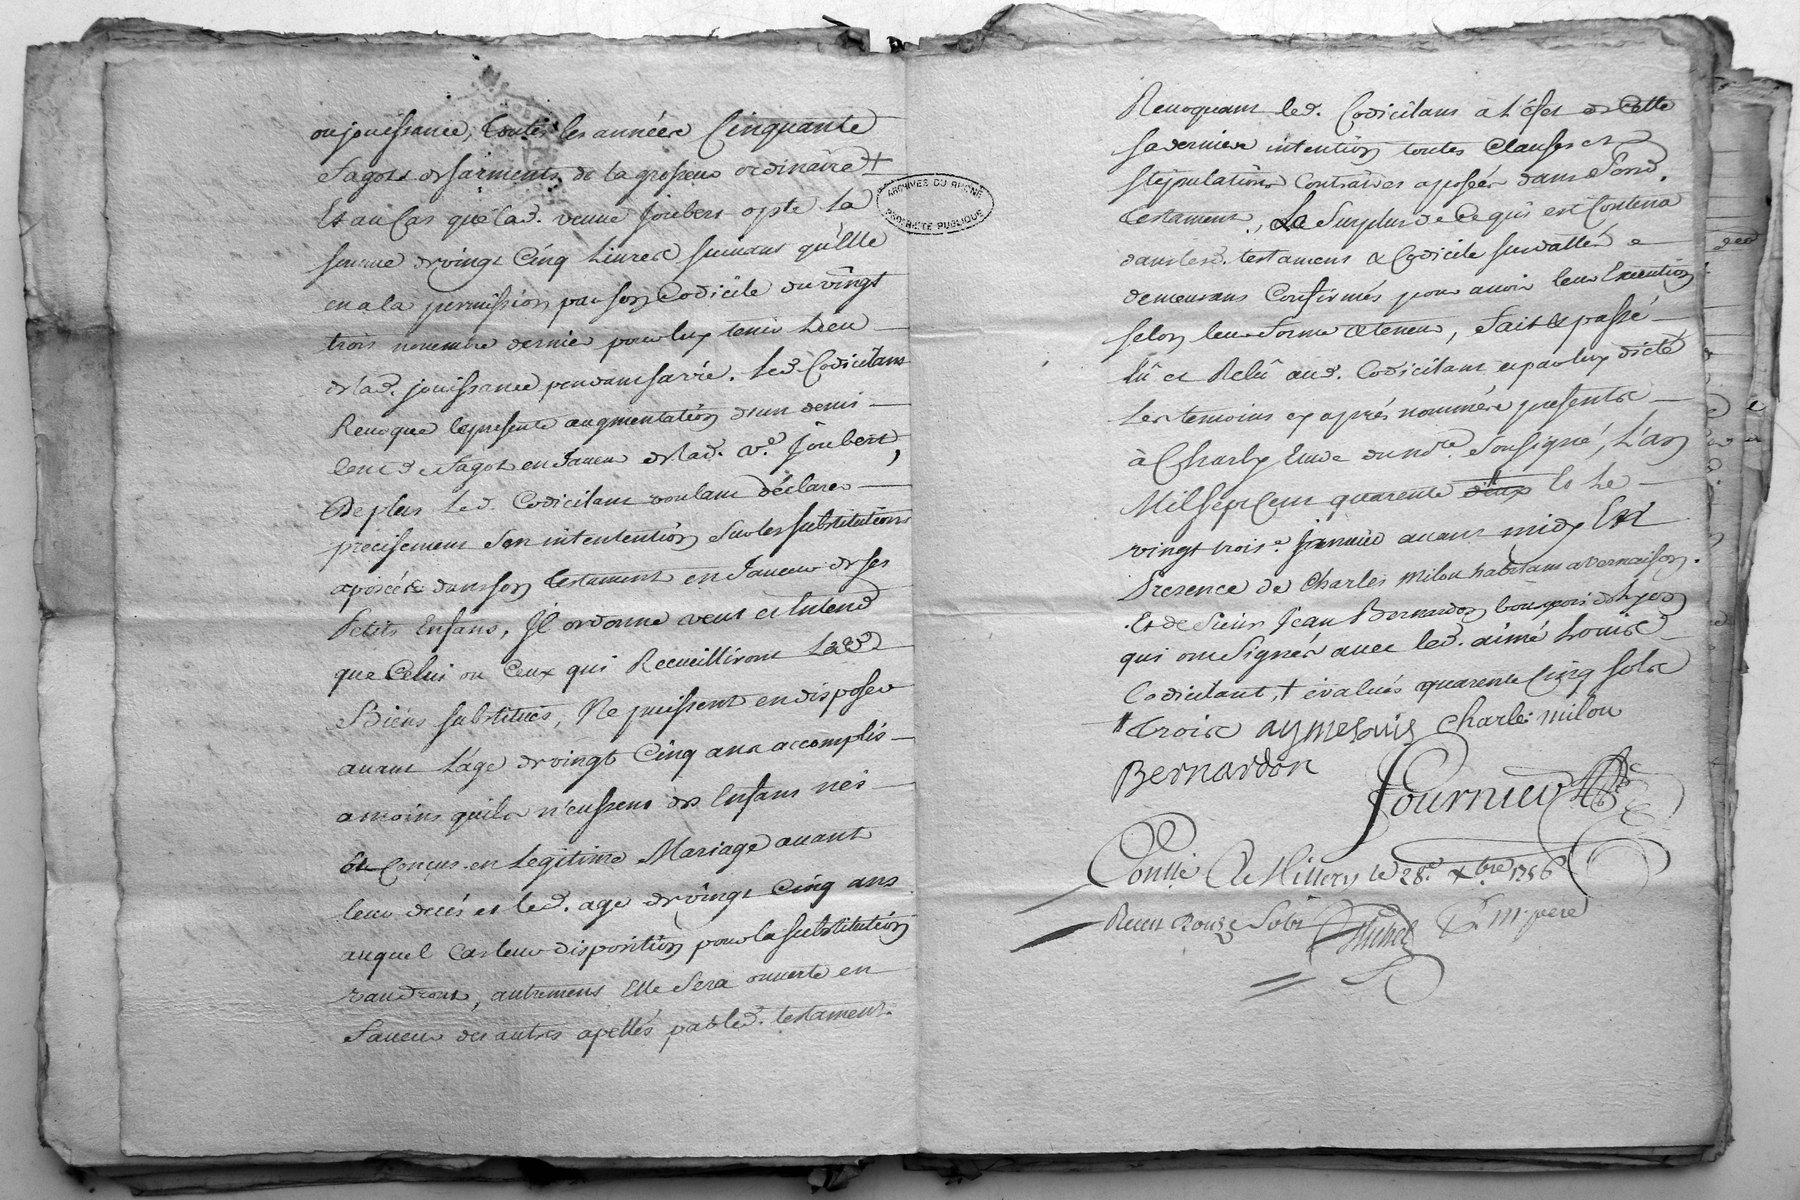 ou jouissance, toutes les années Cinquante
fagots de sarments de la grosseur ordinaire +
Et au Cas que lad. veuve Joubert opte La
somme de vingt Cinq Livres suivant qu'Elle
en a la permission par son Codicile du vingt
trois novembre dernier pour luy tenir Lieu
de lad. jouissance pendant sa vie. Led. Codicilant
Revoque la presente augmentation d'un demi
cent de fagot en faveur de lad. ve. Joubert,
De plus Led. Codicilant voulant déclarer
precisement son intentention sur les substitutions
aposées dans son testament en faveur de ses
Petits Enfans, Il ordonne veut et Entend
que Celui ou Ceux qui Recueilliront Lesd.
Biens substitués, Ne puissent en disposer
avant L'age de vingt Cinq ans accomplis
a moins quils n'eussent des Enfans nés
ou Conçus en Legitime Mariage avant
leur decés et led. age de vingt Cinq ans
auquel Cas leur disposition pour la substitution
vaudront, autrement Elle sera ouverte en
faveur des autres apellés par led. testament.
ARCHIVES DU RHÔNE
PROPRIÉTÉ PUBLIQUE
Revoquant led. Codicilant à l'éfet de Cette
sa derniere intention toutes Clauses et
stipulations Contraires aposées dans sond.
testament, Le Surplus de Ce qui est Contenu
dans lesd. testament & Codicile susdattés
demeurant Confirmés pour avoir leur Execution
selon leur forme & teneur, fait & passé
lû et Relû aud. Codicilant et par luy dicté
Les temoins cy aprés nommés presents
à Charly Etude du nore. soussigné, L'an
Mil sept Cent quarente deux to Le
vingt trois e. janvier avant midy En
Presence de Charles Milou habitant a Vernaison
Et de Sieur Jean Bernardon bourgeois de Lyon
qui ont signés avec led. aimé Louis
Codicilant, + évalués quarente Cinq sols
# trois aymeloüis Charle milou
Bernardon
fournier Nre
Contlé à Millery le 28e. Xbre 1756
Recu douze Sols Michel